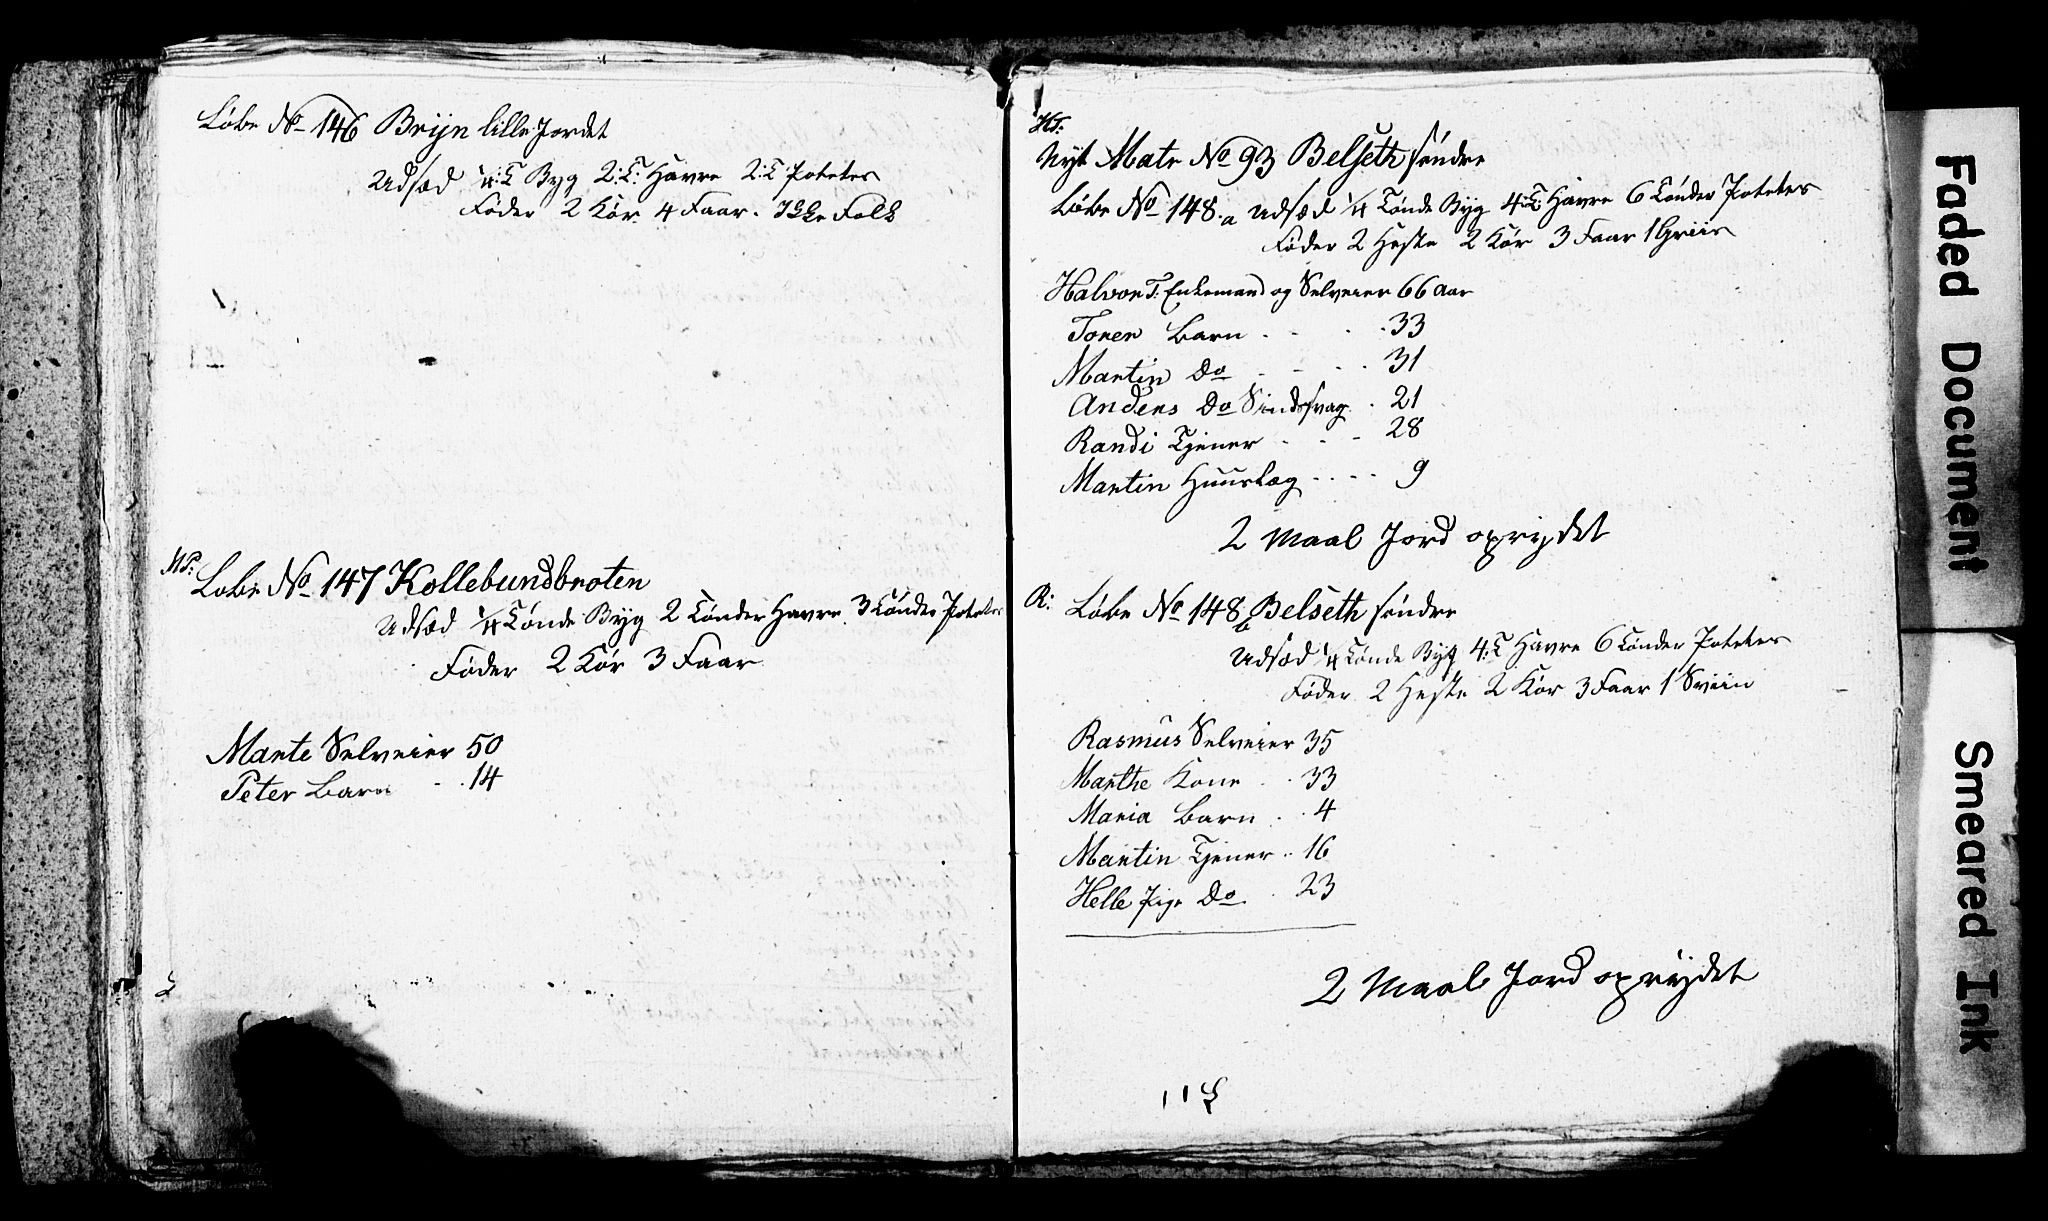 Löbe No 146 Brÿn lille Jordet
Udsæd 1/4 T Byg 2:T: Havre 2:T Poteter
Föder 2 Kör 4 Faar. Ikke Folk
MP:
Löbe No 147 Kollebundbroten
Udsæd 1/4 Tönde Byg 2 Tönder Havre. 3 Tönder Poteter
Föder 2 Kör 3 Faar
Marte Selveier 50
Peter Barn - . 14
HT:
Nyt Matr No 93 Belseth söndre
Löbe No 148.a Udsæd 1/4 Tönde Byg 4:T: Havre 6 Tönder Poteter
Föder 2 Heste 2 Kör 3 Faar 1 Griis
Halvor T: Enkemand og Selveier 66 aar
Torer Barn . - . . 33
Martin Do - - - . 31
Anders Do Sindssvag . 21
Randi Tjener - - - 28
Martin Huuslæg - - - - 9
2 Maal Jord oprydet
R: Löbe No 148 b Belseth söndre
Udsæd 1/4 Tönde Byg 4:T Havre 6 Tönder Poteter
Föder 2 Heste 2 Kör 3 Faar 1 Sviin
Rasmus Selveier 35
Marthe Kone . . 33
Maria Barn . . 4
Martin Tjener .. 16
Helle Pige Do . 23
2 Maal Jord oprydet
Faded Document
Smeared Ink